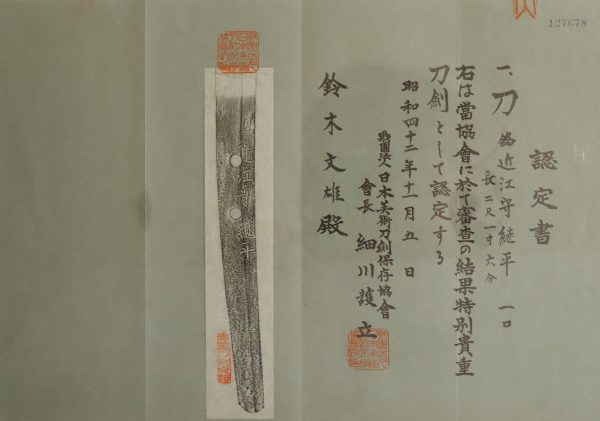 127678
認定書
一、刀 銘近江守継平 一口
長二尺一寸六分
右は當協會に於て審査の結果特別貴重
刀劍として認定する
昭和四十二年十一月五日
財團法人日本美術刀劍保存協會
會長 細川護立
鈴木文雄殿
近江守継平